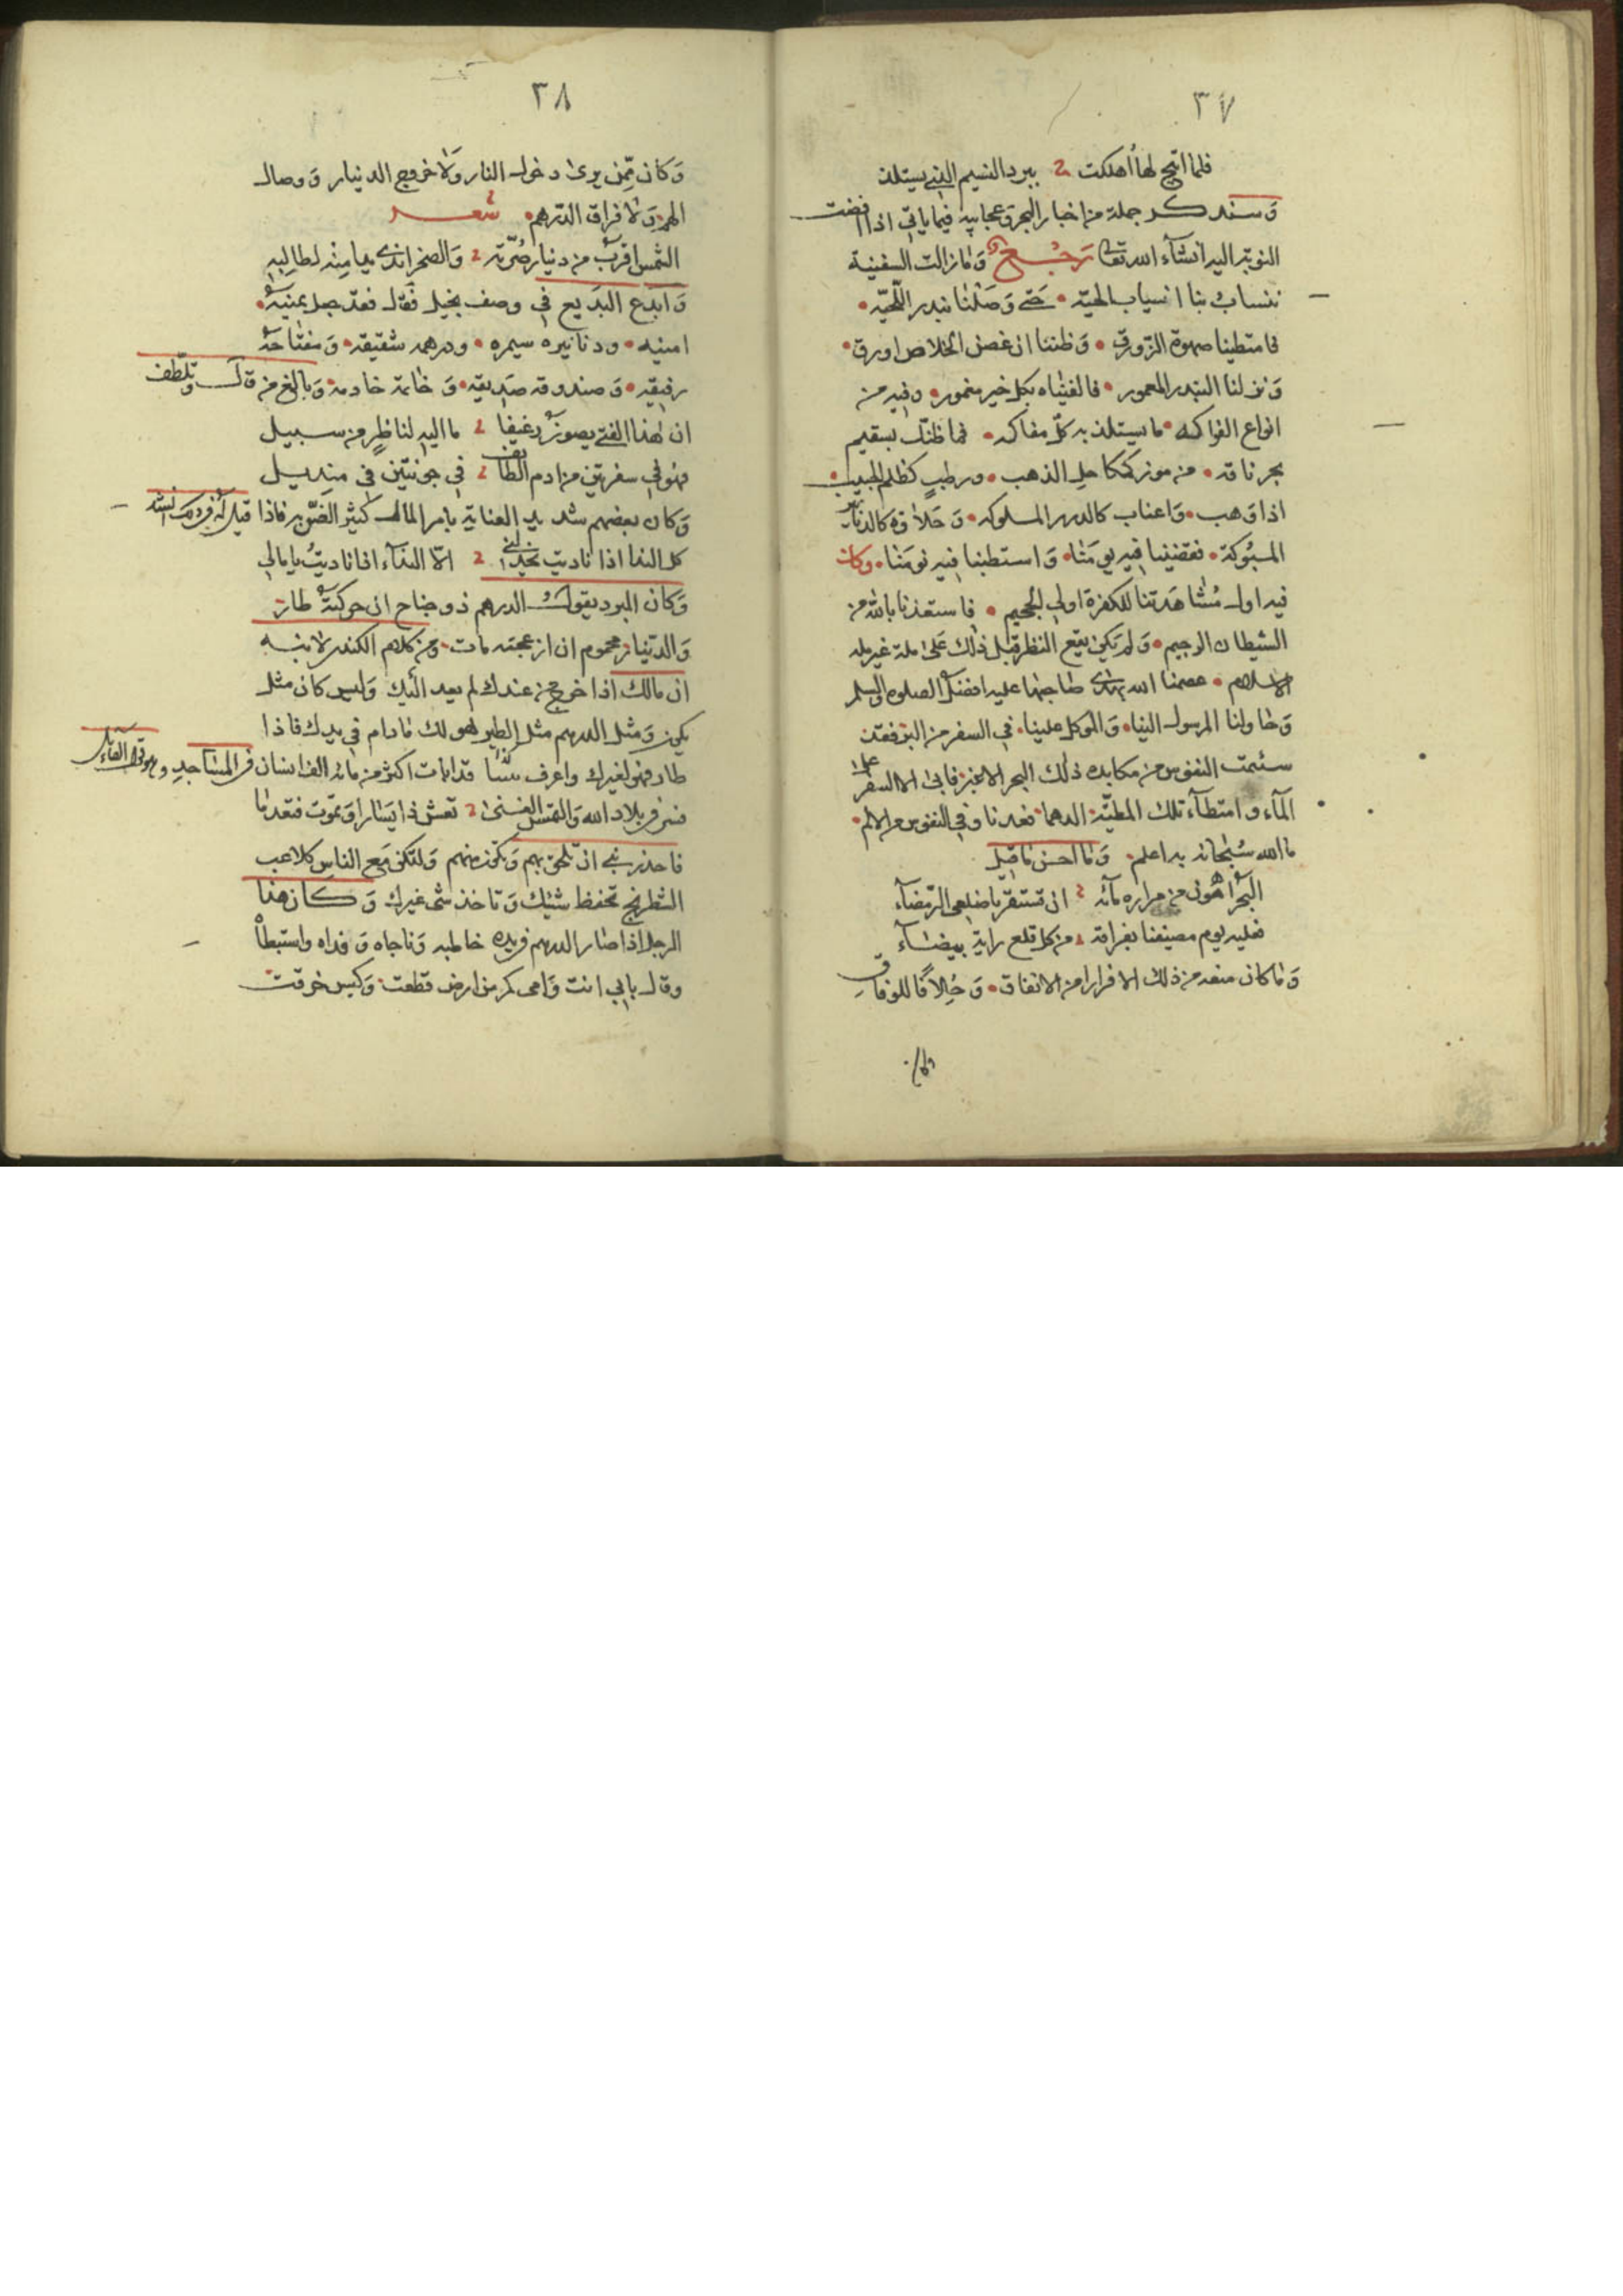 ٣٧
فلما اتيح لها أهلكت ببرد النسيم الذي يستلذ
وسنذكر جملة من اخبار البحر وعجايبه فيما ياتي اذا افضت
النوبة اليه انشآء الله تعالى رجع وما زالت السفينة
تنساب بنا انسياب الحيّه • حتى وصلنا بندر اللّحيّه •
فامتطينا صهوة الزورق • وظننا ان غصن الخلاص اورق •
ونزلنا البندر المعمور • فالفيناه بكل خير مغمور • وفيه من
انواع الفواكه • ما يستلذ به كلّ مفاكه • فما ظنك بسقيم
بحر ناقه • من موز كمكاحل الذهب • ورطب كظلم الحبيب •
اذا وهب • واعناب كالدرر المسلوكه • وحلاوه كالدنانير
المسبوكة • فقضينا فيه يومَنا • واستطبنا فيه نومَنا • وكان
فيه اول مُشاهَدتنا للكفرة اولي الجحيم • فاستعذنا بالله من
الشيطان الرجيم • ولم يكن يقع النظر قبل ذلك على ملة غير ملة
الاسلام • عصمنا الله بهدى صاحبها عليه افضل الصلوه والسلم
وحاولنا المرسول الينا • والموكل علينا • في السفر من البر فقد
سئمت النفوس من مكابدة ذلك البحر الاغبر فابى الا السفر على
المآء وامتطآء تلك المطيّة الدهما فعدنا وفي النفوس من الالم •
ما الله سُبحانه به اعلم • وما احسن ما قيل
البحر اهون من مراره مآئه ان تستقر باضلعي الرمضآء
فعليه يوم مصيفنا بفراقة من كل قلع راية بيضآء
وما كان منعه من ذلك الا فرارا من الانفاق • وخلافًا للوفاق
وكان
٣٨
وكان ممّن يرى دخول النار ولا خروج الدنيار ووصال
الهم ولا فراق الدرهم • شعر
الشمس اقرب من دنيار صُرّته والصخر اندى يدا منه لطالبه
وابدع البديع في وصف بخيل فقال فقد جعل يمنيه •
امنيه • ودنانيره سيمره • ودرهمه شقيقه • ومفتاحه
رفيقه • وصندوقه صديقه • وخاتمة خادمه • وبالغ من قال وتلطف
ان هذا الفتى يصون رغيفا ما اليه لناظر من سبيل
فهو في سفرتين من ادم الطائف في جونتين في منديل
وكان بعضهم شديد العناية بامر المال كثير الضن به فاذا قيل له في ذلك انشد
كل الندا اذا ناديت يخذلني الّا الندآء اذا ناديتُ يا مالي
وكان البرد يقول الدرهم ذو جناح ان حركته طار
والدنيار محموم ان ازعجته مات • ومن كلام الكندي لابنه
ان مالك اذا خرج من عندك لم يعد اليك وليس كان مثل
يكون ومثل الدرهم مثل الطير هو لك مادام في يدك فاذا
طار فهو لغيرك واعرف بيتا قد ابات اكثر من مائة الف انسان في المساجد وهو قول القائل
فسر في بلاد الله والتمس الغنى تعش ذا يسارا وتموت فتعذرا
فاحذر بني ان تلحق بهم وتكون منهم ولتكن مع الناس كلاعب
الشطرنج تحفظ شيئك وتاخذ شئ غيرك وكان هذا
الرجل اذا صار الدرهم في يده خاطبه وناجاه وفداه واستبطأ
وقال بابي انت وامي كم من ارض قطعت • وكيس خرقت